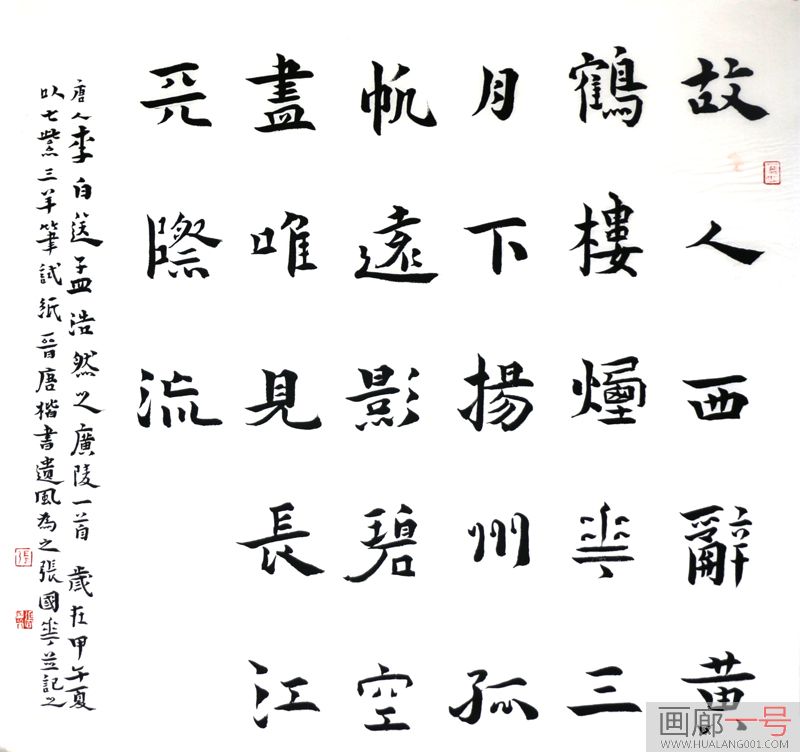 故人西辭黃
鶴樓煙華三
月下揚州孤
帆遠影碧空
盡唯見長江
天際流
唐人李白送孟浩然之廣陵一首 歲在甲午夏
以七紫三羊筆試紙晉唐楷書遺風為之張國華並記之
画廊一号
WWW.HUALANG001.COM